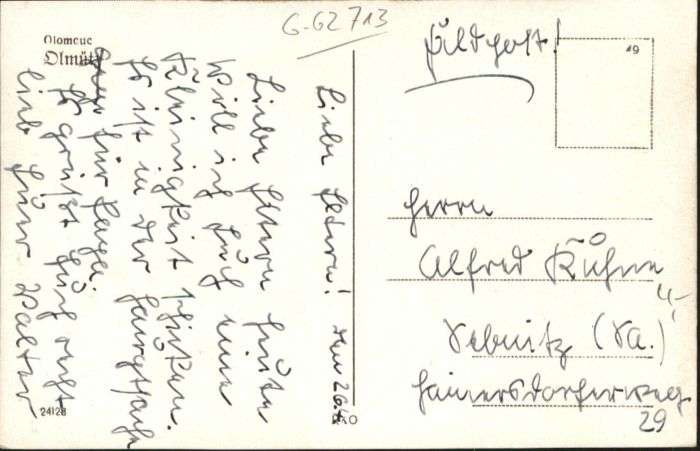 G-G2713
Olomouc
Olmütz
Feldpost!
49
Liebe Eltern! den 26.4.
Liebe Eltern heute
will ich Euch eine
Kleinigkeit schicken.
Es ist in der Hauptsache
für
Es grüßt Euch recht
lieb Euer Walter
24128
Herrn
Alfred Kühne
4,-
Sebnitz (Sa.)
Hainersdorferweg
29